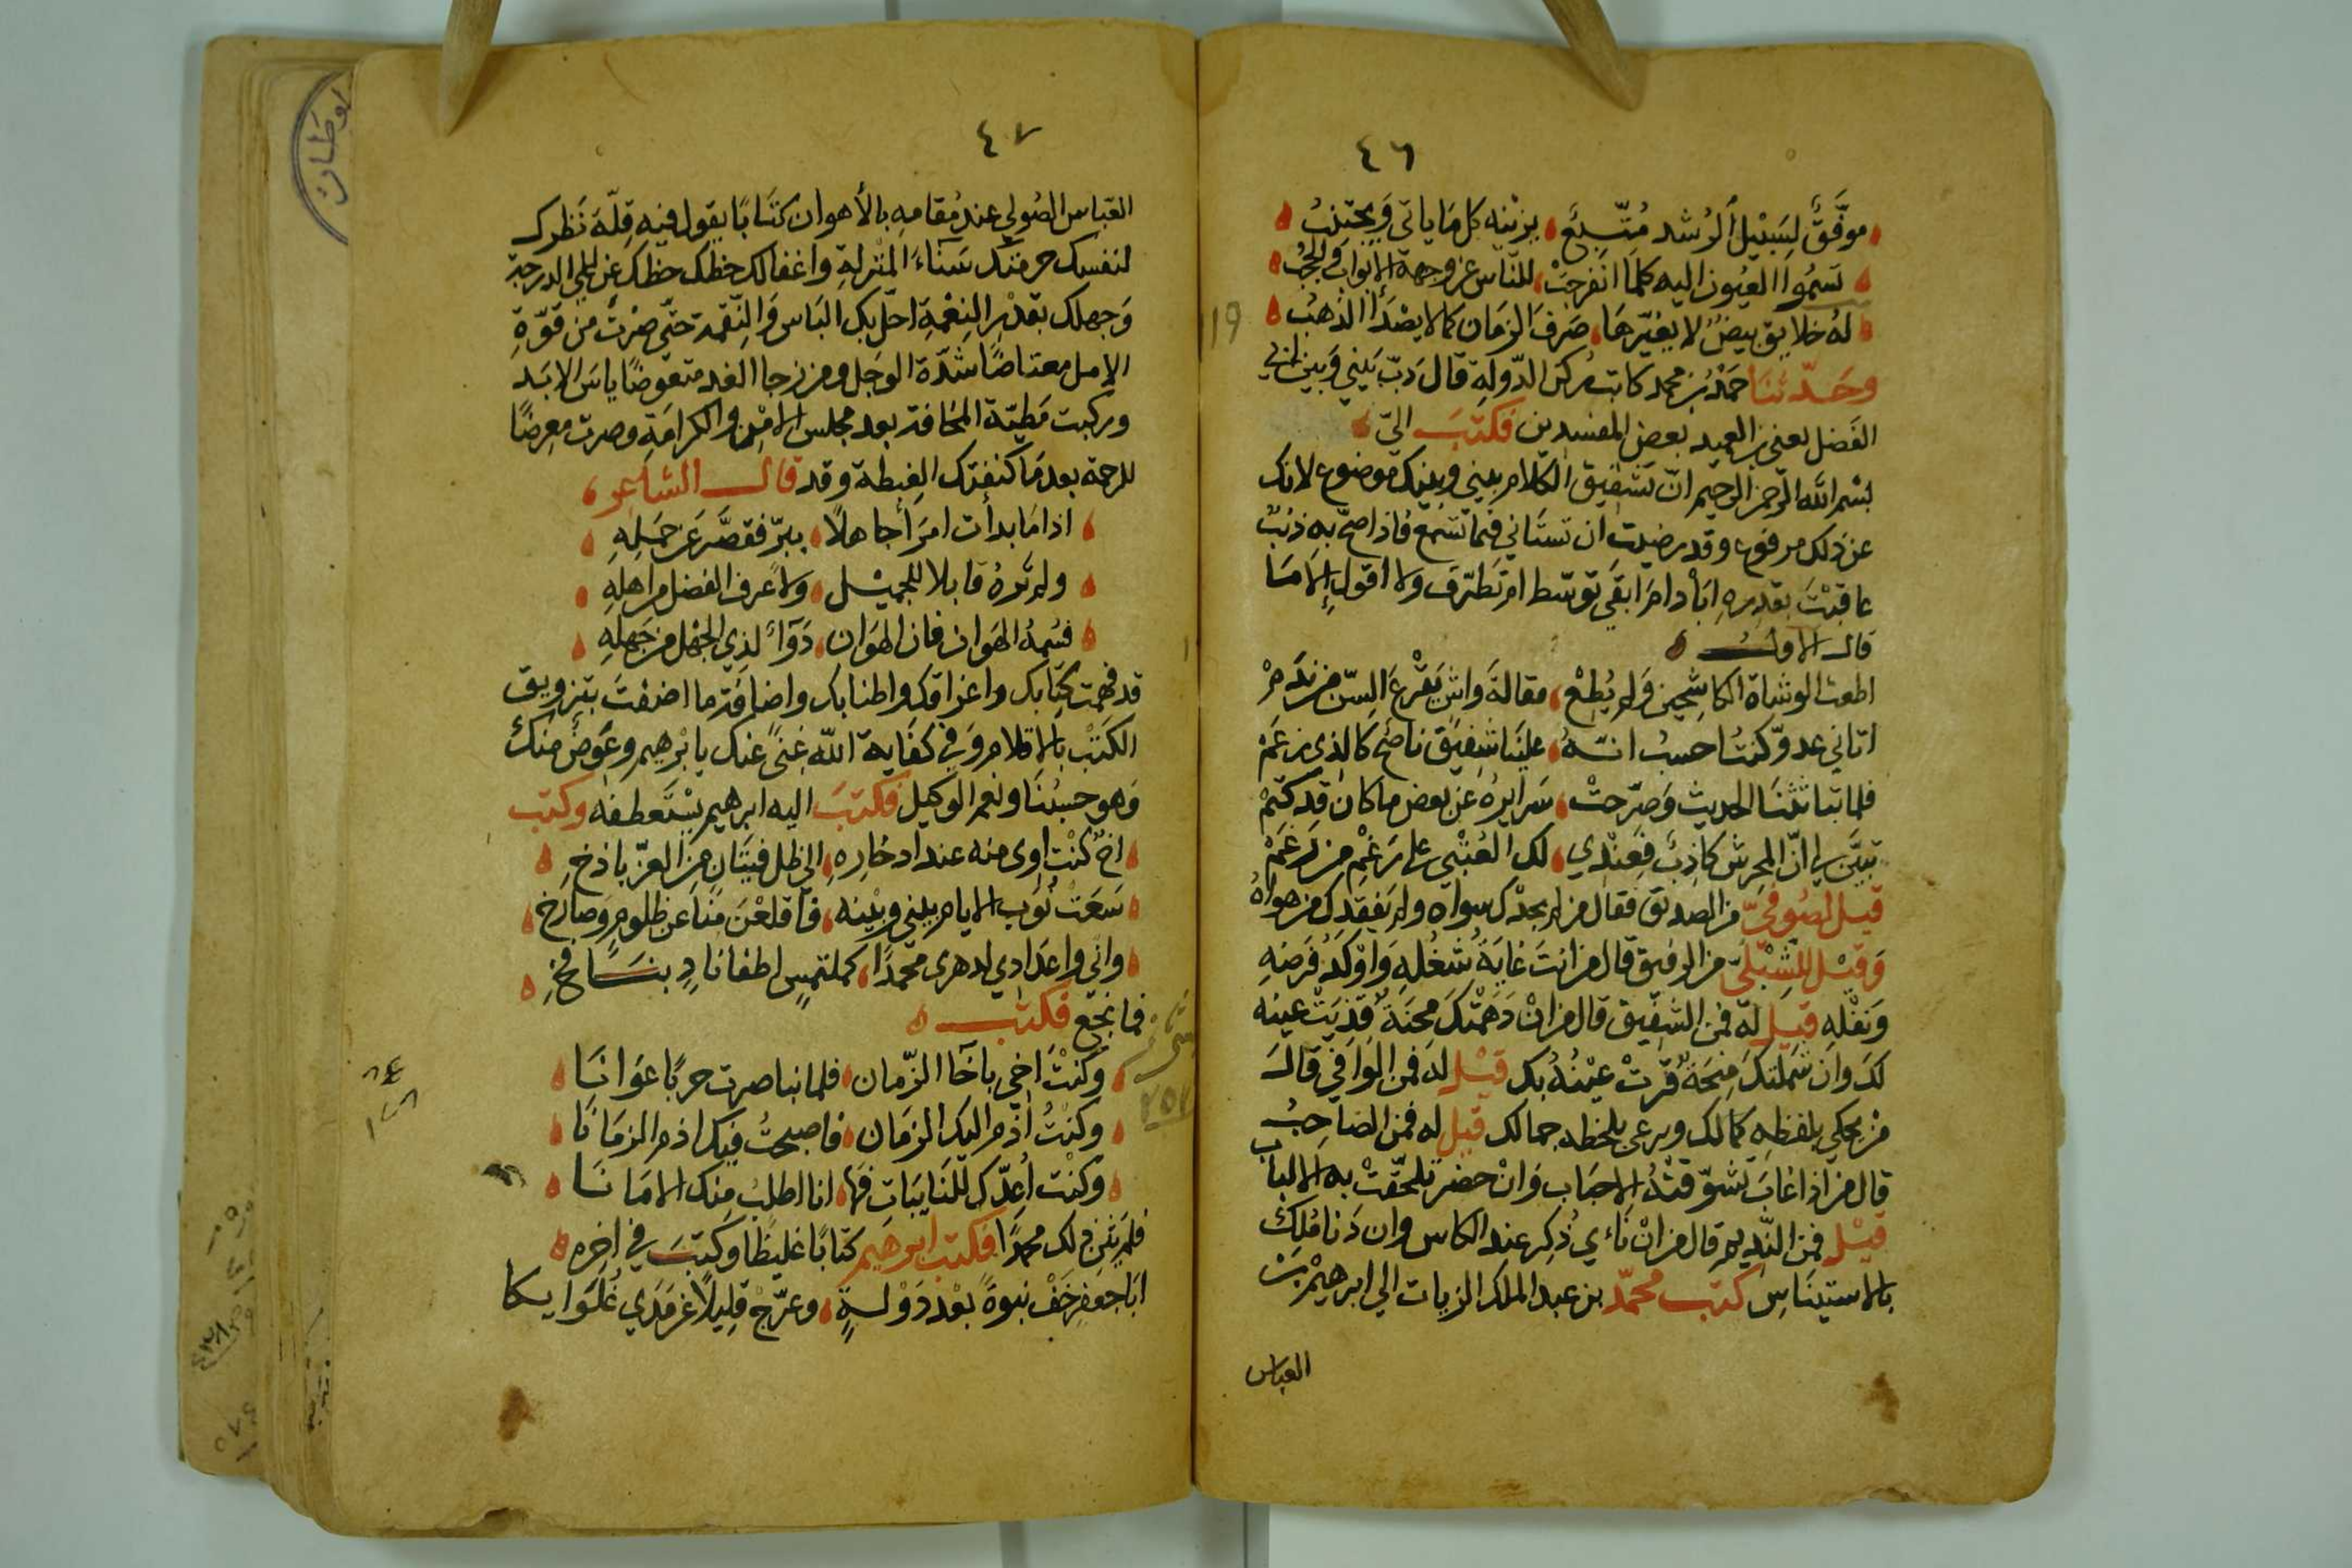 ٤٦
موفَّقٌ لِسَبيْل الرُشد مُتّبِعٌ يزيْنه كل مَا ياتى وَيجتنبُ
تسمُوا العيُون اليه كلما انفرجَتْ للنّاس عن وجهه الابواب والحجُبُ
لهُ خلايق بيضٌ لا يغيّرهَا صَرفَ الزمَان كما لا يصْدَأُ الذهَبُ
وحَدّثنَا حَمْدُ بن محمد كاتب ركن الدّولة قال دبّ بَيني وَبين ابي
الفَضل يعنى بن العميد بعض المفسدين فكتبَ الىّ
بسْم الله الرّحمن الرّحيم انّ تشقيق الكلام بيني وبينك موضوع لانك
عن ذلك مرفوع وقد رضيت ان تستَاني فيما تسْمع فاذا صحّ به ذنبٌ
عاقبْتَ بقدرهِ ابَادَ امَ ابقَى توسّط ام تطرّف ولا اقول الامَا
قال الاول
اطعت الوشاة الكاشحين وَلم يُطِعْ مقالةَ واشٍ يقْرعَ السّن من نَدَمْ
اتاني عدوّ كنتُ احسبُ انّهُ علينَا شفيْق ناصح كالذى زعَمْ
فلما تباثثنَا الحديث وَصرّحتْ سَرايرهُ عن بعض ما كان قد كتمْ
تبيّن لى انّ المحرّش كاذبٌ فعنْدي لك العُتْبي على رَغْمِ من رَغَمْ
قيل لصُوفيّ من الصديق فقال من لم يجدْك سواه ولم يَفقِدك من هواهُ
وَقيْل للشبْليّ من الرفيق قال من انتَ غايَةُ شغْلهِ وَاوْكَدُ فَرضِهِ
وَنفْلهِ قيل له فمن الشفيق قال من انْ دَهَمْتكَ محنَةٌ قذيَتْ عينه
لكَ وان شملتكَ منحَةٌ قرّتْ عيْنهُ بك قيْل له فمن الوَافي قالَ
منْ يحكي بلفظهِ كمالك ويرعى بلحظه جمالك قيل له فمن الصَاحِبُ
قال من اذا غابَ تشوّقتْهُ الاحبَاب وَانْ حضر تلحّقتْ به الالبابُ
قيْل فمن النّديم قال من انْ نَاءي ذُكِر عند الكاس وان دَنا مُلِكَ
بالاستينَاس كتب محمّد بن عبد الملك الزيات الى ابرهيْم بن
العباس
٤٧
العبّاس الصُولي عند مُقامهِ بالأهوان كتَابًا يقول فيه قِلّة نَظرك
لنفسك حرمتك سَنَاءَ المنْزلةِ واغفالك حظك حظك عن على الدرجة
وَجهلك بقدْر النعْمةِ احَلّ بك البَاس وَالنِّقمة حتّى صرْت من قوّةِ
الامل معتاضًا شدّة الوجل ومن رجا الغد متعوضًا ياسَ الابَد
وركبت مَطيّة المخافة بعد مجلس الامْن والكرَامَةِ وصرت معرضًا
للرحمة بعد مَا كنفتك الغِبطة وقد قال الشاعر
اذا مَا بدأت امرَأً جاهلًا ببرّ فقصّر عَن حَمْلِهِ
ولم تَرهُ قابلا للجميْل ولا عرف الفضل من اهلِهِ
فسُمهُ الهَوان فان الهَوان دَوَاءٌ لذِي الجهْل من جَهلِهِ
قد فهمت كتابك واغراقك واطنابك واضافة ما اضفتَ بتزويق
الكتْب بالاقلام وَفي كفَاية الله غِنيً عنك يا بْرهيم وعِوَضٌ مِنكَ
وَهو حسبُنَا ونعم الوكيل فكتبَ اليه ابرهيم يَسْتعطفه وكتب
اخٌ كنْت اوى منه عند ادخارهِ الى ظل فيْنَان من العزّ باذخِ
سَعَتْ نُوَب الايام بيني وبيْنه فاقلعْنَ منّا عن ظلوم وَصارخِ
وانّي واعدَادي لدهرى محمّدًا كملتمسٍ اطفا نارٍ بنَافخِ
فما نجع فكتب
وكنْتَ اخي باخَا الزّمان فلما نبا صرت حربًا عَوانَا
وكنْتُ أذم اليك الزمَان فاصبحتُ فيك اذم الزمَانَا
وكنْت أعِدّك للنَايبَات فها انا اطلبُ منك الامَانَا
فلم يثنِ ذلك محمدًا فكتب ابرهيم كتَابًا غليظًا وكتبَ في اخره
ابَا جعفر خَفْ نبوةً بعْد دَوْلةٍ وعرّجْ قليلًا عن مَدي غُلَوايكا
١١٩
٢٥٧